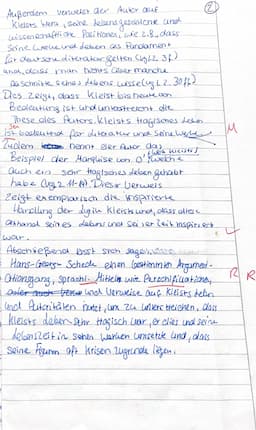 ②
Außerdem verweist der Autor auf
Kleists Werk, seine Lebensgeschichte und
wissenschaftliche Positionen, wie z.B., dass
Seine Werke und Leben als Fundament
für deutsche Literatur gelten (vgl. Z. 3f.)
und, dass man nichts über manche
Abschnitte seines Lebens wisse (vgl. Z. 30ff.)
Dies zeigt, dass Kleist bis heute von
Bedeutung ist und unterstreicht die
These des Autors, Kleists tragisches Leben
sei
ist bedeutend für Literatur und seine Werke
Zudem nennt der Autor das
Beispiel der Marquise von O
auch ein sehr tragisches Leben gehabt
habe (vgl. Z. 11-). Dieser Verweis
zeigt exemplarisch die inspirierte
Handlung der Figur Kleists und, dass
anhand seines Lebens und seiner Zeit inspiriert
war.
M
Abschließend lässt sich sagen,
Hans-Georg einen bestimmten Argument-
sprachl. Mittel wie
oder auch und Verweise auf Kleists Leben
und Autoritäten nutzt, um zu unterstreichen, dass
Kleists Leben sehr tragisch war, er dies und seine
Lebenszeit in seinen Werken umsetzte und, dass
seine Figuren oft Krisen zugrunde liegen.
R R